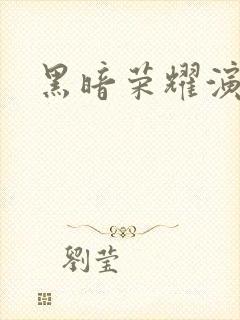 黑暗荣耀演
劉莹